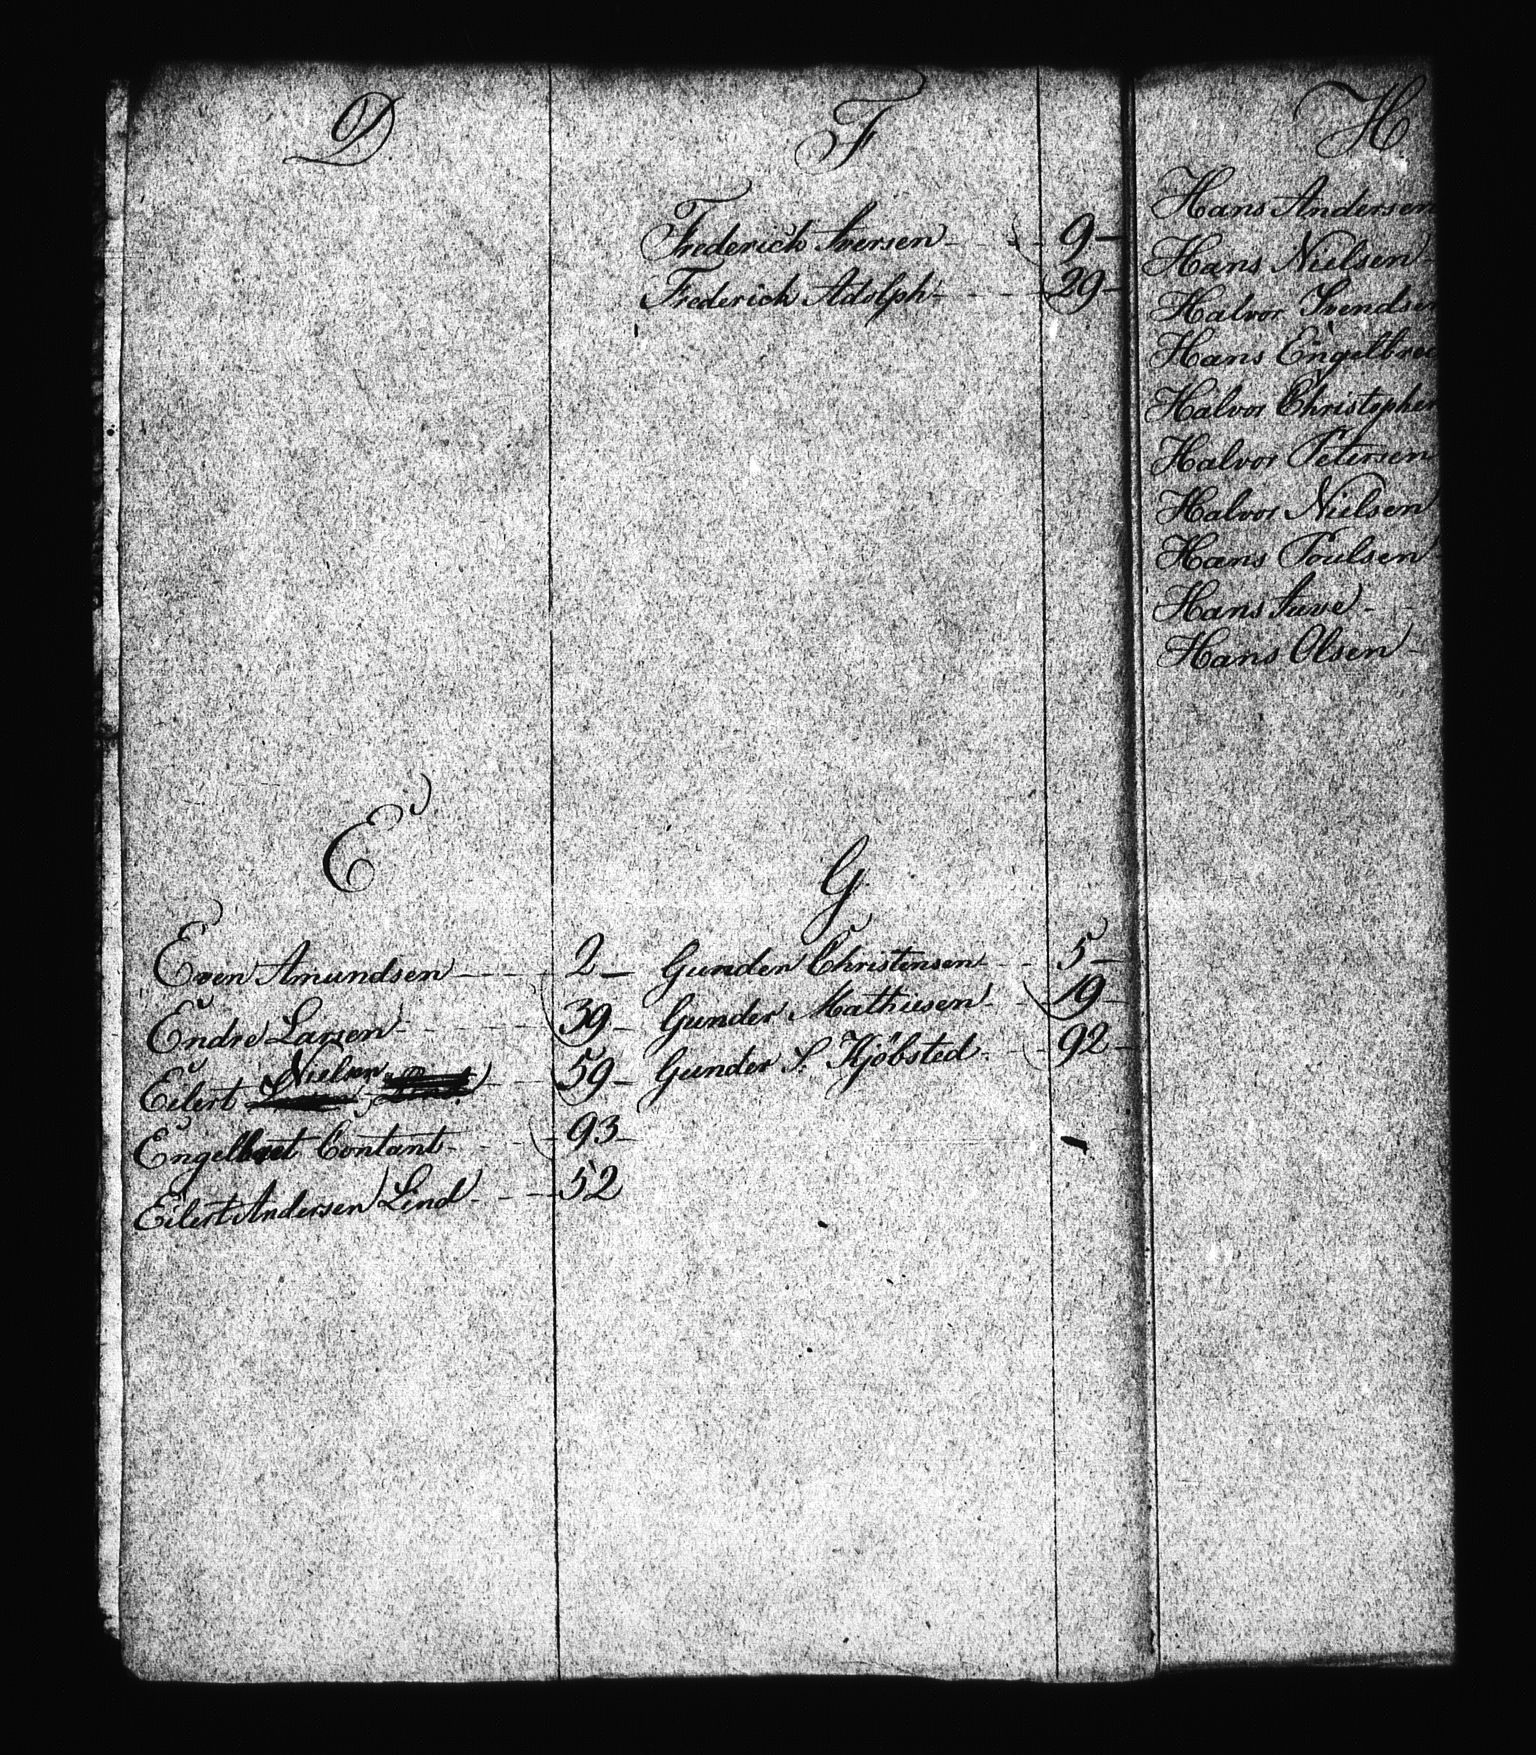 D
E
Even Amundsen 2
Endre Larsen 39
Eilert Nielsen 59
Engelbret Contant 93
Eilert Andersen Lind 52
F
Frederich Iversen 9
Frederich Adolph 29
G
Gunder Christensen 5
Gunder Mathisen 19
Gunder S. Kjöbsted 92
H
Hans Andersen
Hans Nielsen
Halvor Svendsen
Hans Engelbre
Halvor Christopher
Halvor Petersen
Halvor Nielsen
Hans Poulsen
Hans Juve
Hans Olsen